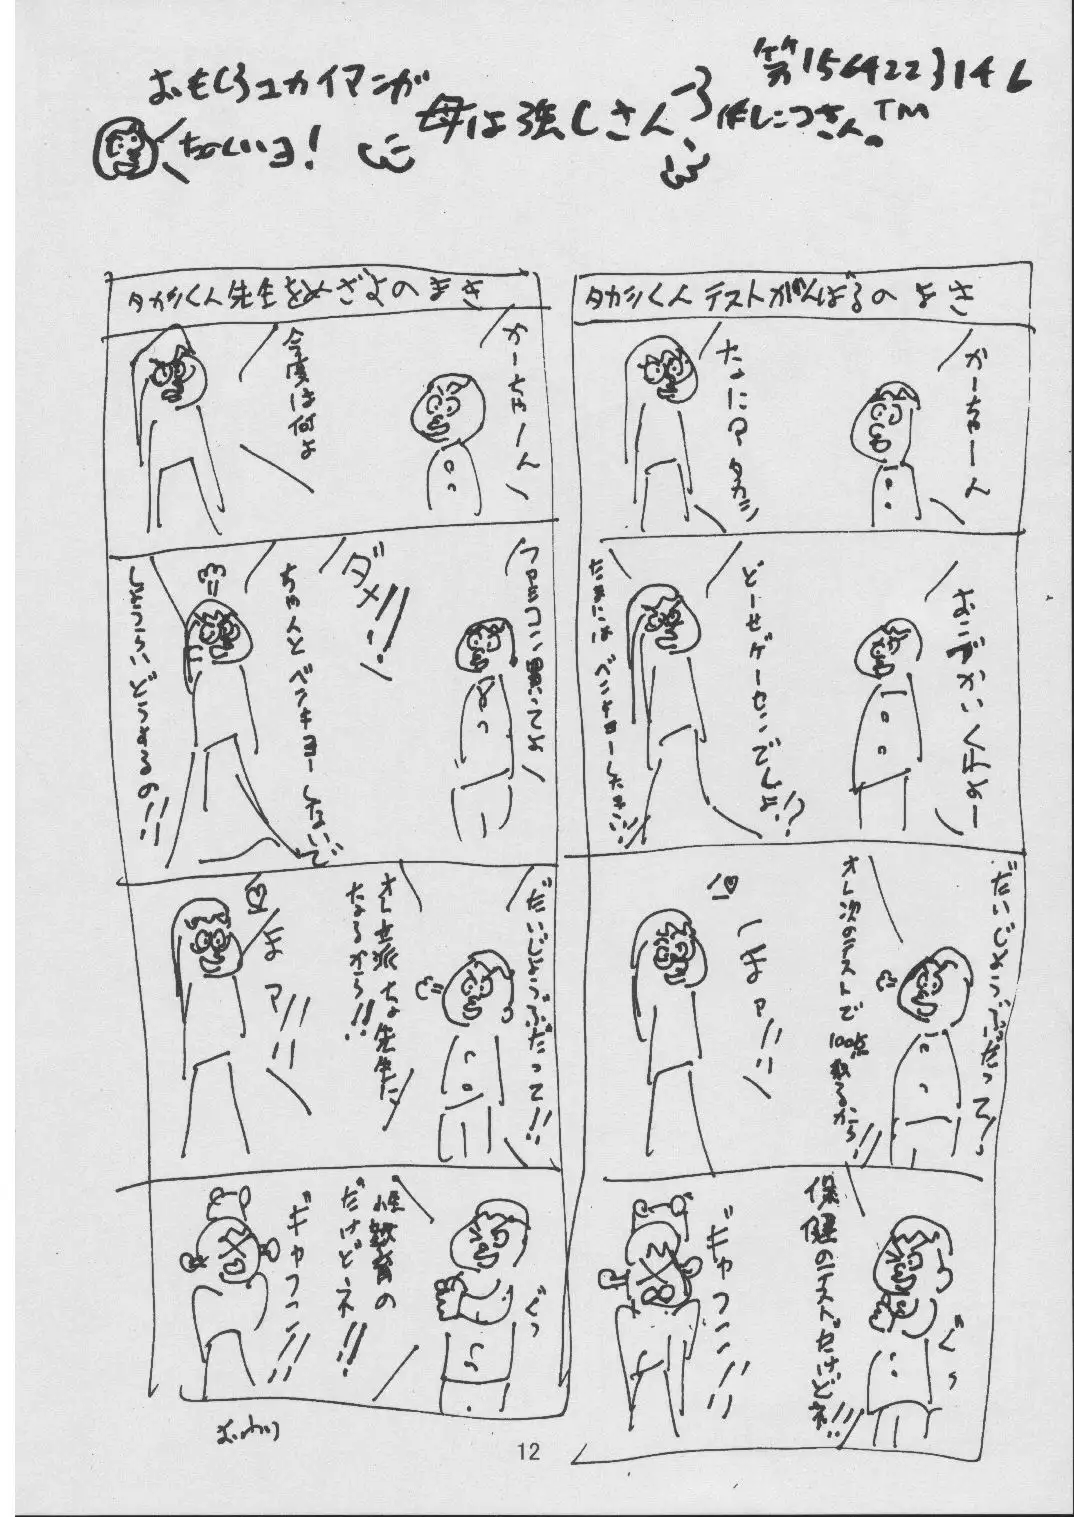 第156422 3146
おもしろユカイマンガ
母は強しさん
作しこつさん。TM
ちゃしいヨ!
タカシくん テストがんばるの まき
かーちゃーん
なーに? タカシ
おこづかいくれよー
どーせゲーセンでしょ!?
たまにはベンキョーしなさい!!
だいじょうぶだって!!
オレ次のテストで100点取るから!!
まァ!!
保健のテストだけどネ!!
ぐっ
ギャフン!!
タカシくん先生をめざすの まき
かーちゃーん
今度は何よ
ファミコン買ってよ
ダメ!!
ちゃんとベンキョーしないで
しょうらいどうするの!!
だいじょうぶだって!!
オレ立派な先生に
なるから!!
まァ!!
性教育の
だけどネ!!
ぐっ
ギャフン!!
おわり
12